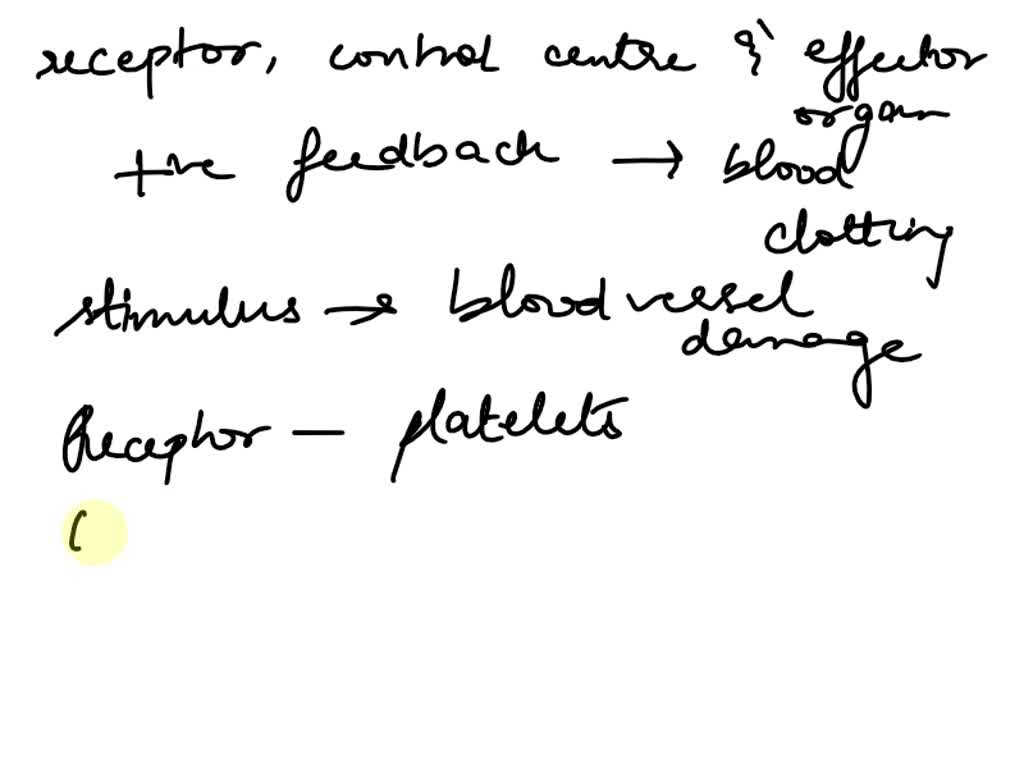 receptor, control centre & effector
organ
+ve feedback → blood
clotting
stimulus → blood vessel
damage
Receptor - platelets
(